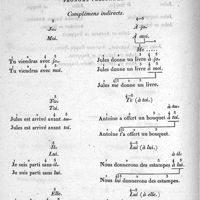 Complémens indirects.
Je.
Moi.
A je.
A moi.
Me
Tu viendras avec je.
Tu viendras avec moi.
Jules donne un livre à je.
Jules donne un livre à moi.
Jules me donne un livre.
Tu.
Toi.
Te (à toi.)
à tu.
Jules est arrivé avant tu.
Jules est arrivé avant toi.
Antoine a offert un bouquet à toi.
Antoine t'a offert un bouquet.
Il.
Lui.
Lui (à lui.)
à il.
Je suis parti sans il.
Je suis parti sans lui.
Nous donnerons des estampes à lui.
Nous lui donnerons des estampes.
Elle.
Lui (à elle.)